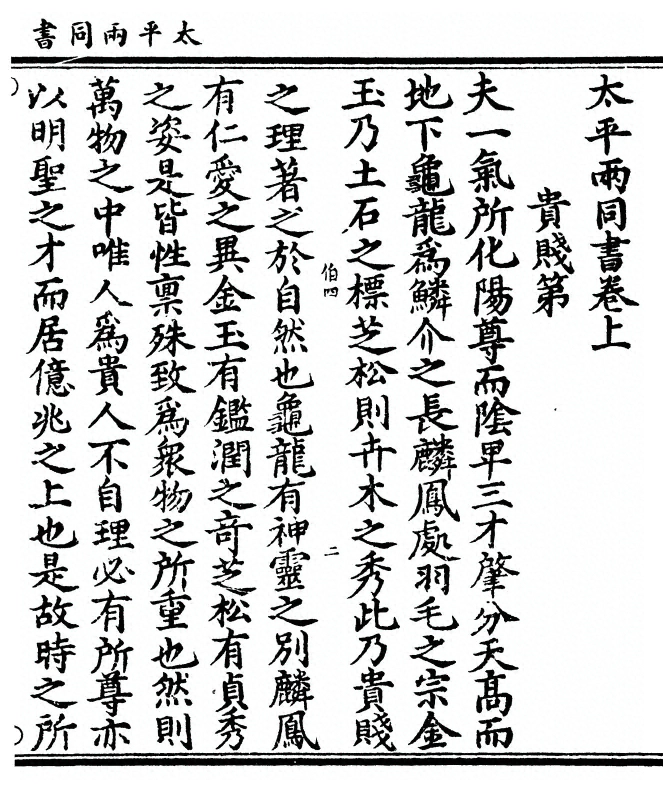 太平兩同書
太平兩同書卷上
貴賤第
夫一氣所化陽尊而陰卑三才肇分天髙而
地下龜龍爲鱗介之長麟鳳處羽毛之宗金
玉乃土石之標芝松則卉木之秀此乃貴賤
伯四
二
之理著之於自然也龜龍有神靈之別麟鳳
有仁愛之異金玉有鑑潤之竒芝松有貞秀
之姿是皆性禀殊致爲衆物之所重也然則
萬物之中唯人爲貴人不自理必有所尊亦
以明聖之才而居億兆之上也是故時之所